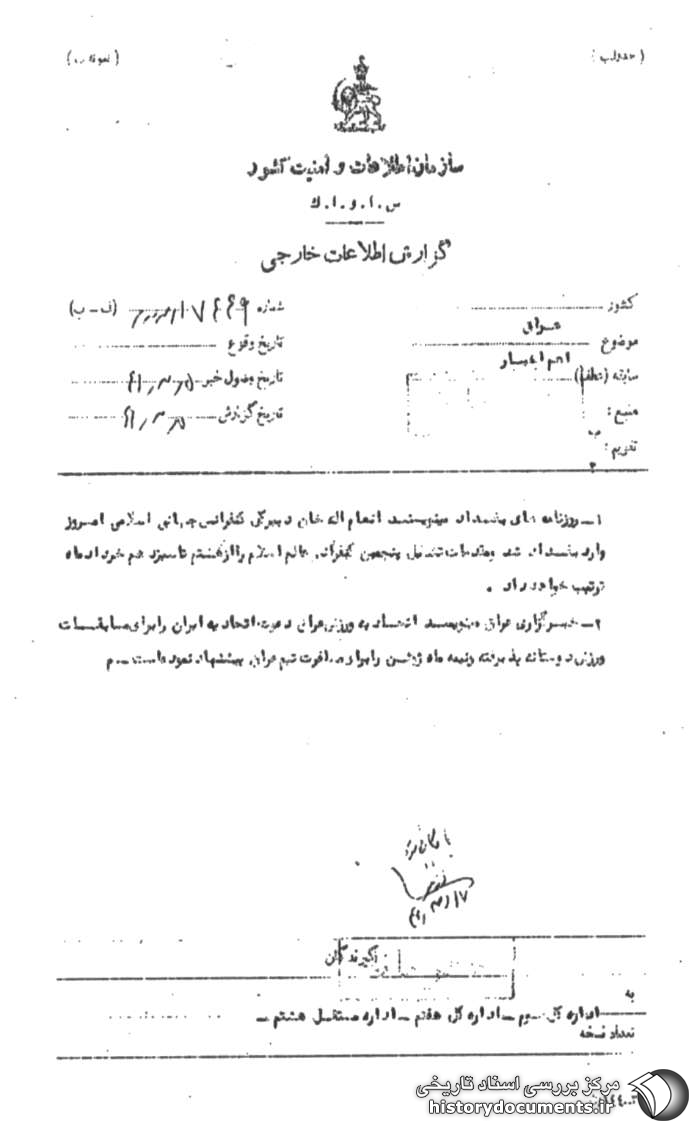 (نمونه ب)
سازمان اطلاعات و امنیت کشور
س.ا.و.ا.ك
گزارش اطلاعات خارجی
کشور عراق
موضوع اهم اخبار
سابقه (عطف)
منبع :
تقویم : ب ۲
شماره (ف-ب)
تاریخ وقوع
تاریخ وصول خبر
تاریخ گزارش
۱- روزنامه های بغداد مینویسند انعام اله خان دبیرکل کنفرانس جهانی اسلامی امروز
وارد بغداد شد و مقدمات تشکیل پنجمین کنفرانس عالم اسلام را از هشتم تا سیزدهم خرداد ماه
ترتیب خواهد داد .
۲- خبرگزاری عراق مینویسد اتحادیه ورزش عراق دعوت اتحادیه ایران را برای مسابقات
ورزش دوستانه پذیرفته و نیمه ماه ژوئن را برای مسافرت تیم عراق پیشنهاد نموده است - م
بایگانی شود
گیرندگان
به
اداره کل سوم - اداره کل هفتم - اداره مستقل هشتم -
تعداد نسخه
مرکز بررسی اسناد تاریخی
historydocuments.ir